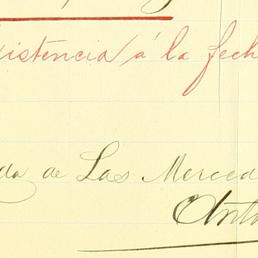 istencia á la fech
da de Las Merced
Anto